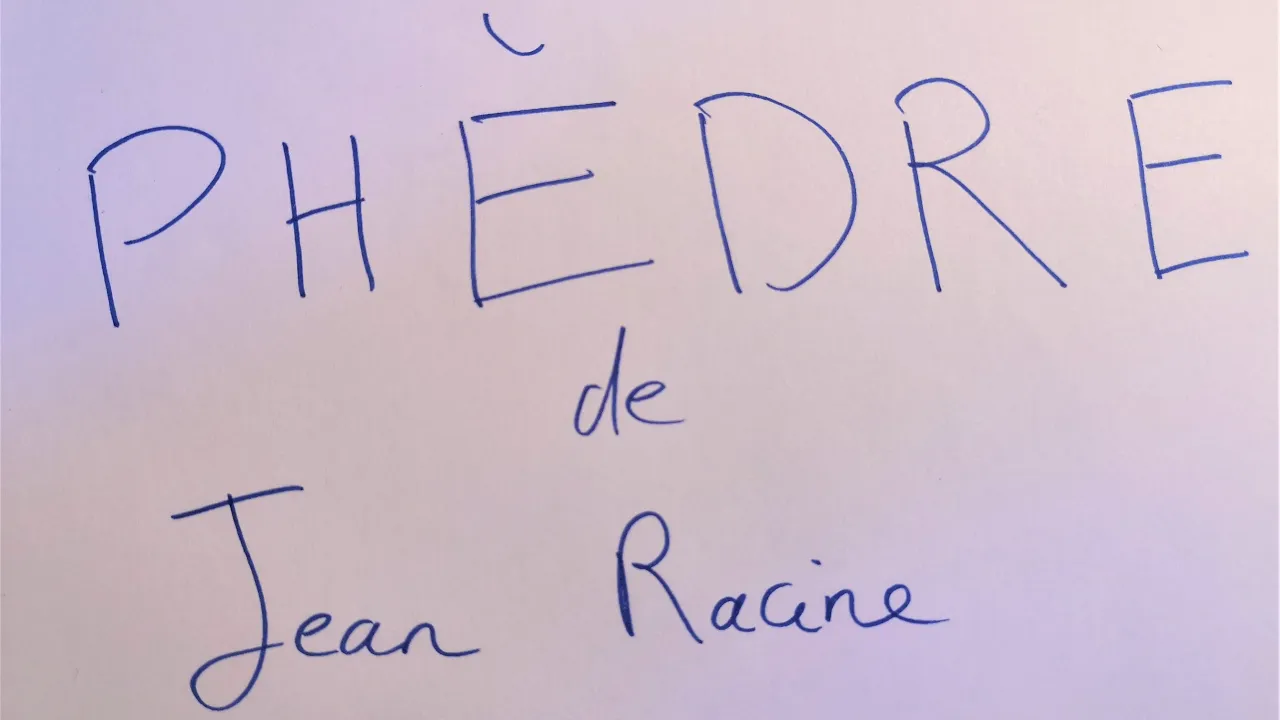 PHÈDRE
de
Jean Racine